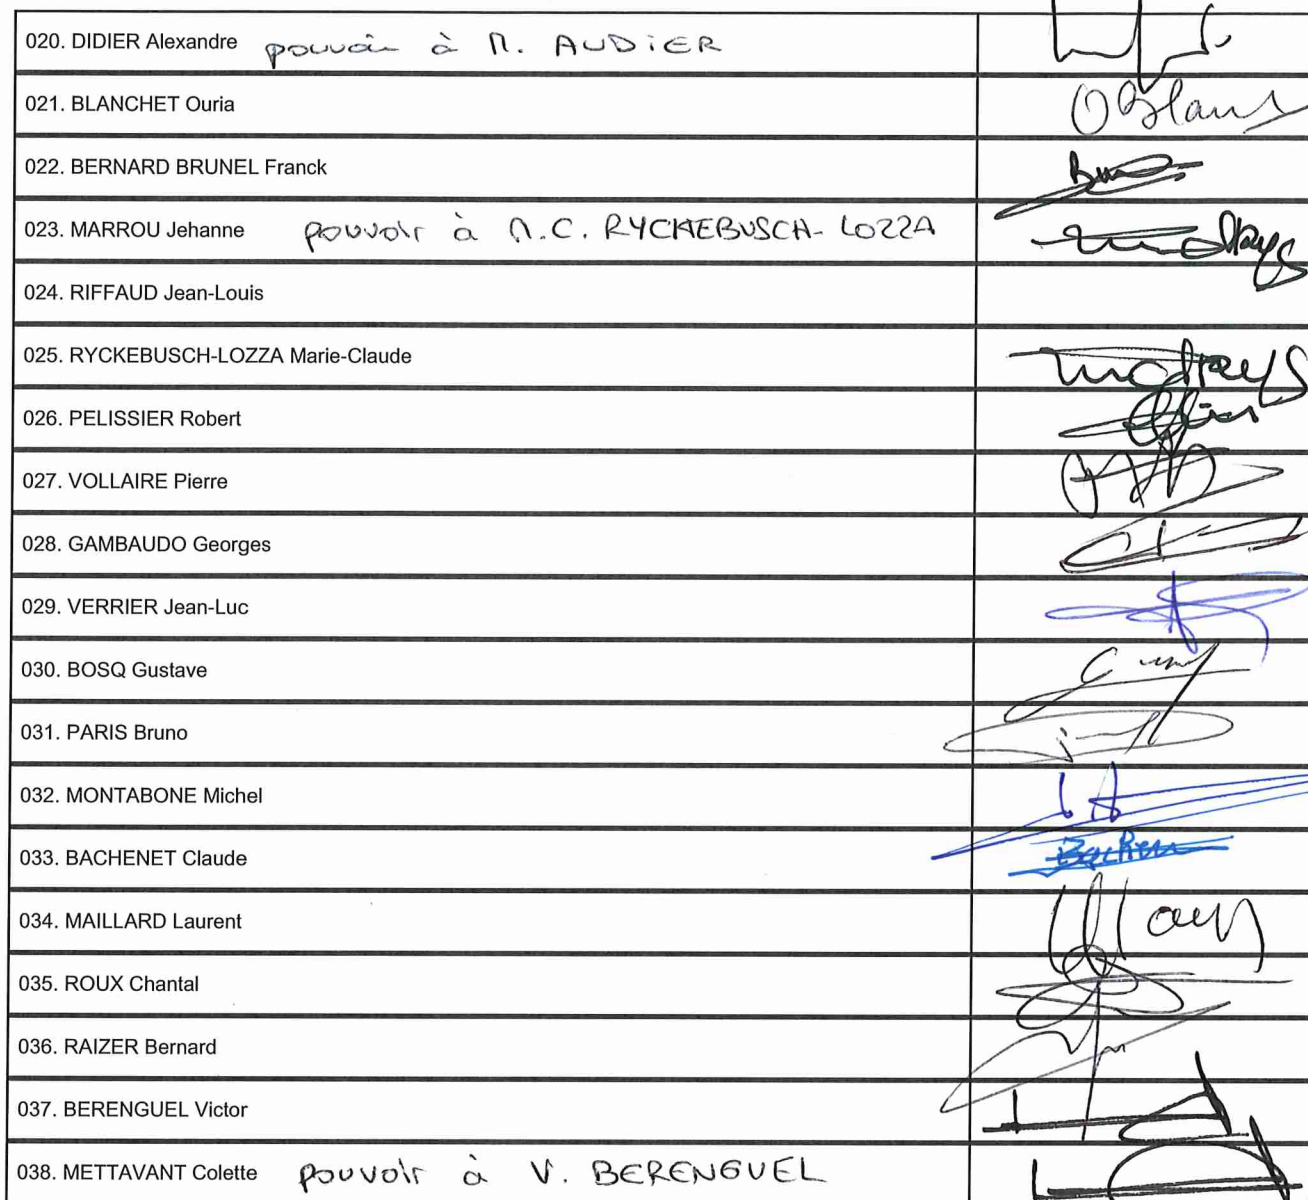 020. DIDIER Alexandre pouvoir à M. AUDIER
021. BLANCHET Ouria
022. BERNARD BRUNEL Franck
023. MARROU Jehanne pouvoir à M.C. RYCKEBUSCH-LOZZA
024. RIFFAUD Jean-Louis
025. RYCKEBUSCH-LOZZA Marie-Claude
026. PELISSIER Robert
027. VOLLAIRE Pierre
028. GAMBAUDO Georges
029. VERRIER Jean-Luc
030. BOSQ Gustave
031. PARIS Bruno
032. MONTABONE Michel
033. BACHENET Claude
034. MAILLARD Laurent
035. ROUX Chantal
036. RAIZER Bernard
037. BERENGUEL Victor
038. METTAVANT Colette pouvoir à V. BERENGUEL